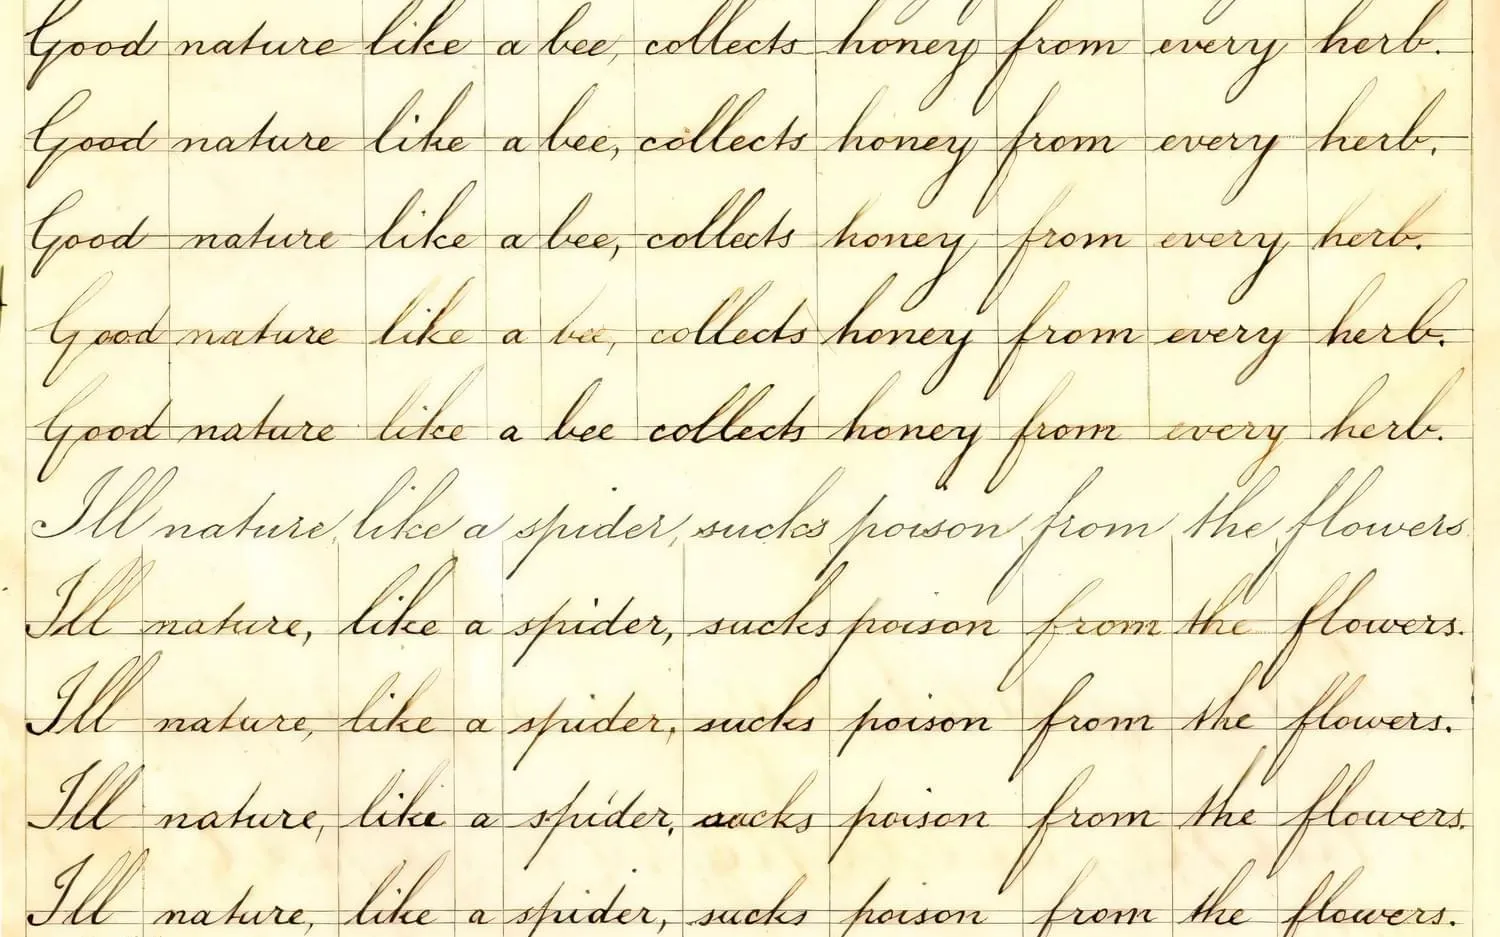 Good nature like a bee, collects honey from every herb.
Good nature like a bee, collects honey from every herb.
Good nature like a bee, collects honey from every herb.
Good nature like a bee, collects honey from every herb.
Good nature like a bee collects honey from every herb.
Ill nature, like a spider, sucks poison from the flowers
Ill nature, like a spider, sucks poison from the flowers.
Ill nature, like a spider, sucks poison from the flowers.
Ill nature, like a spider, sucks poison from the flowers.
Ill nature, like a spider, sucks poison from the flowers.